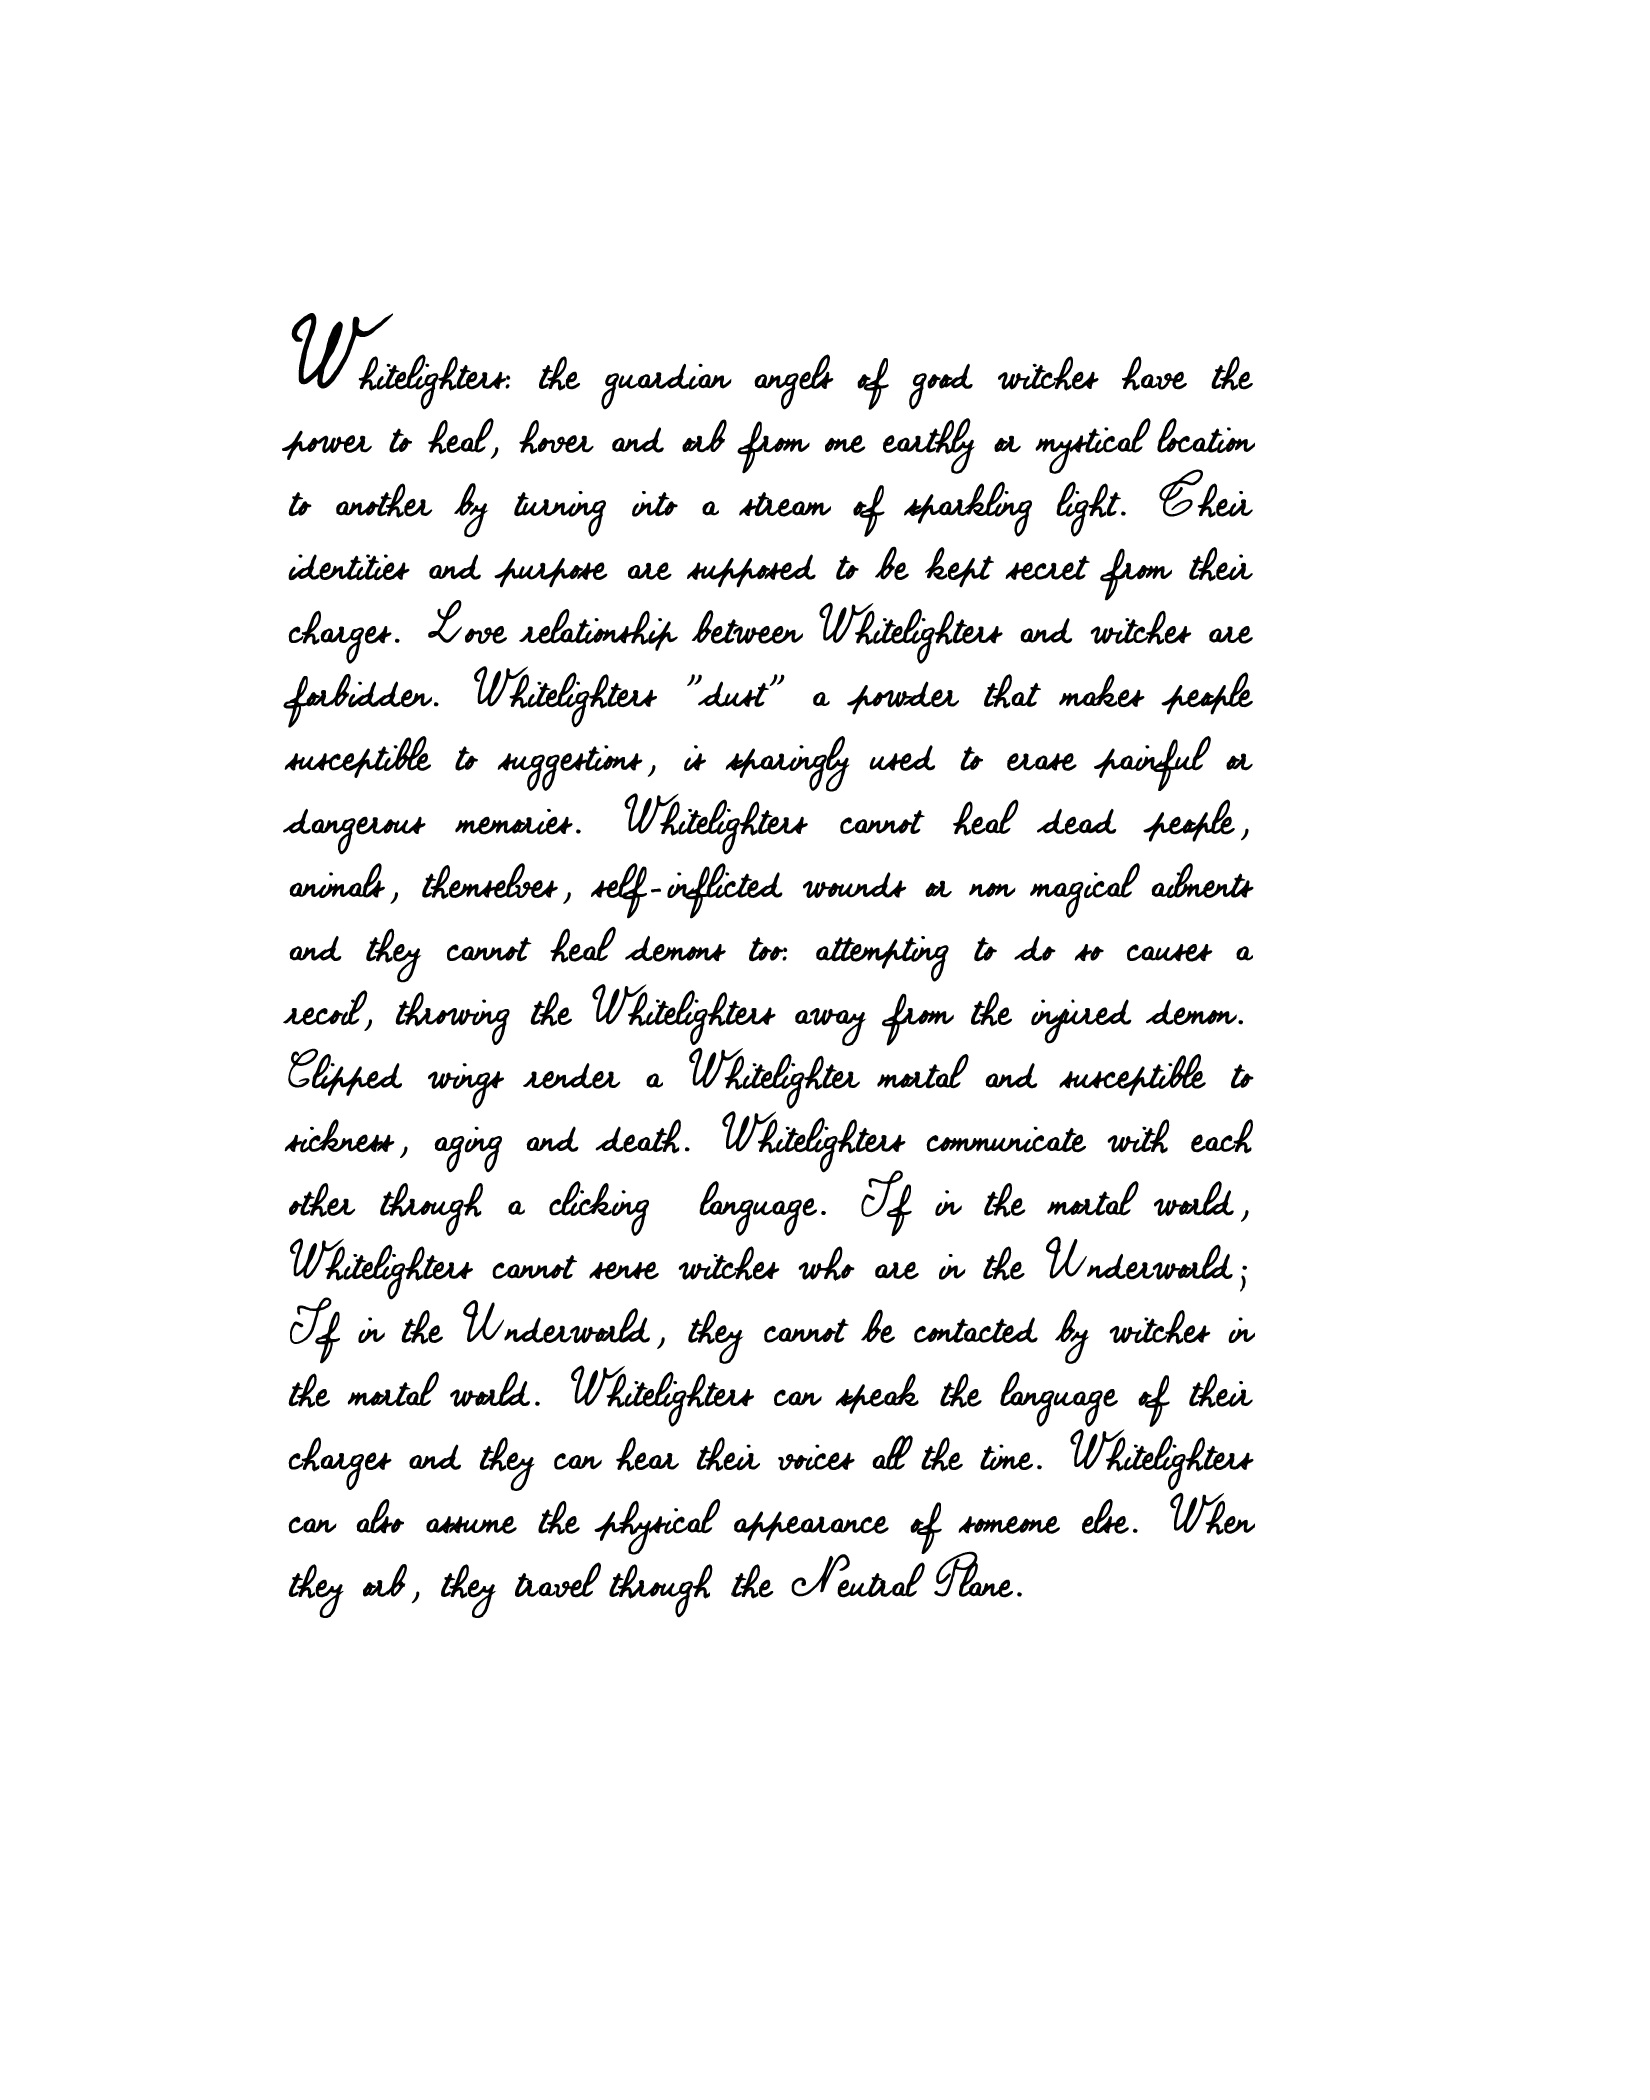 Whitelighters: the guardian angels of good witches have the
power to heal, hover and orb from one earthly or mystical location
to another by turning into a stream of sparkling light. Their
identities and purpose are supposed to be kept secret from their
charges. Love relationship between Whitelighters and witches are
forbidden. Whitelighters "dust" a powder that makes people
susceptible to suggestions, is sparingly used to erase painful or
dangerous memories. Whitelighters cannot heal dead people,
animals, themselves, self-inflicted wounds or non magical ailments
and they cannot heal demons too: attempting to do so causes a
recoil, throwing the Whitelighters away from the injured demon.
Clipped wings render a Whitelighter mortal and susceptible to
sickness, aging and death. Whitelighters communicate with each
other through a clicking language. If in the mortal world,
Whitelighters cannot sense witches who are in the Underworld;
If in the Underworld, they cannot be contacted by witches in
the mortal world. Whitelighters can speak the language of their
charges and they can hear their voices all the time. Whitelighters
can also assume the physical appearance of someone else. When
they orb, they travel through the Neutral Plane.